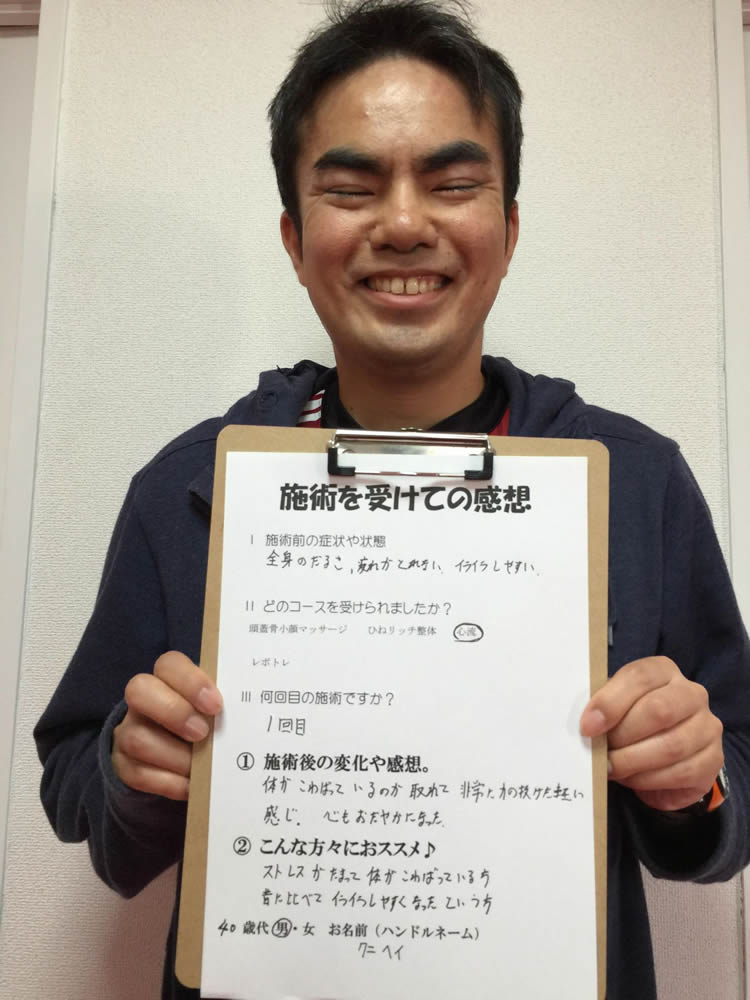 施術を受けての感想
I 施術前の症状や状態
全身のだるさ、疲れがとれない、イライラしやすい。
II どのコースを受けられましたか？
頭蓋骨小顔マッサージ ひねリッチ整体 心流
レボトレ
III 何回目の施術ですか？
1回目
① 施術後の変化や感想。
体がこわばっているのが取れて 非常に力の抜けた軽い
感じ。 心もおだやかになった。
② こんな方々におススメ♪
ストレスがたまって体がこわばっている方
昔に比べてイライラしやすくなったという方
40歳代 男・女 お名前（ハンドルネーム）
クニヘイ